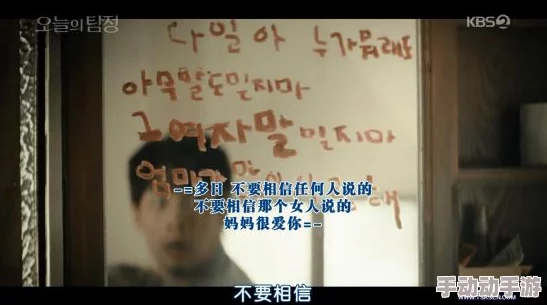 오늘의탐정
KBS2
다일아 누가뭐래도
아무말도믿지마
그여자말믿지마
엄마가
-=多日 不要相信任何人说的
不要相信那个女人说的
妈妈很爱你=-
不要相信
手动动手游